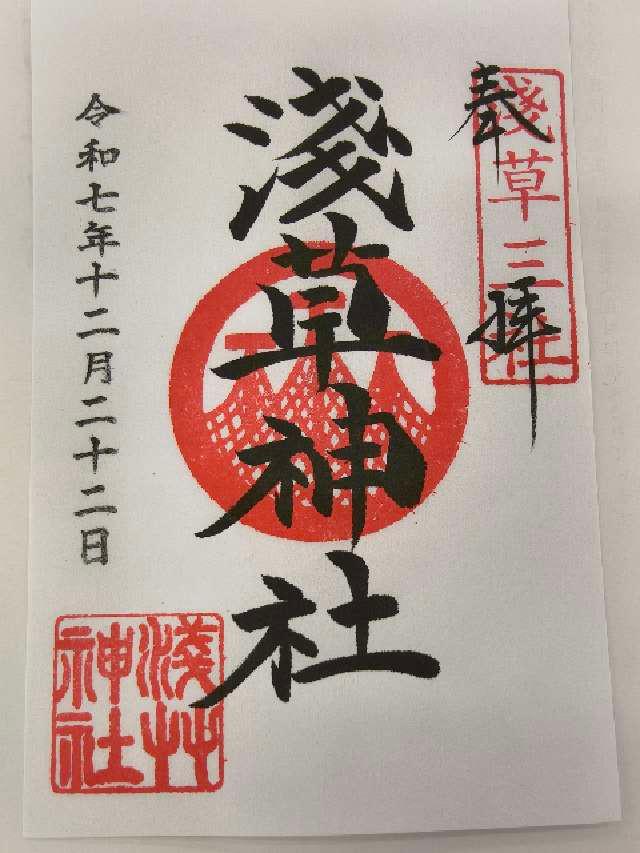 奉拝
淺草三社
淺草神社
令和七年十二月二十二日
淺艸神社